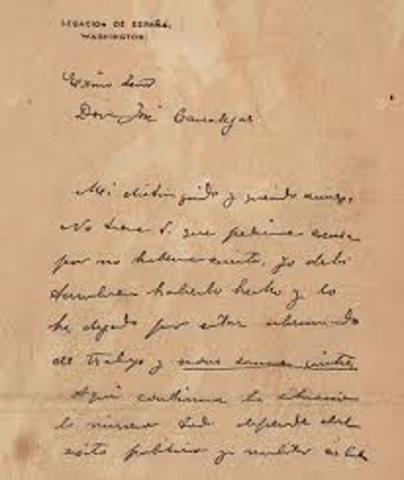 LEGACION DE ESPAÑA,
WASHINGTON.
Exmo Señor
Don José Canalejas
Mi distinguido y querido amigo,
No tiene V. que pedirme excusas
por no haberme escrito, yo debi
tambien haberlo hecho y lo
he dejado por estar abrumado
de trabajo y nous sommes quittes
Aqui continua la situacion
lo mismo todo depende del
exito politico y militar en Cuba